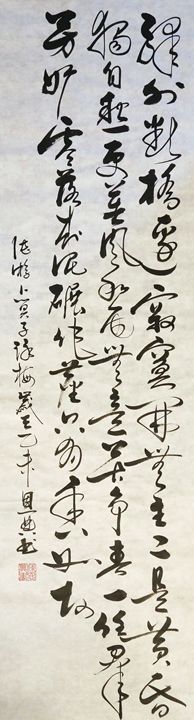 驛外斷橋邊寂寞開無主已是黃昏
獨自愁更著風和雨無意苦爭春一任群
芳妒零落成泥碾作塵只有香如故
陸游卜算子詠梅歲在乙未恩典書